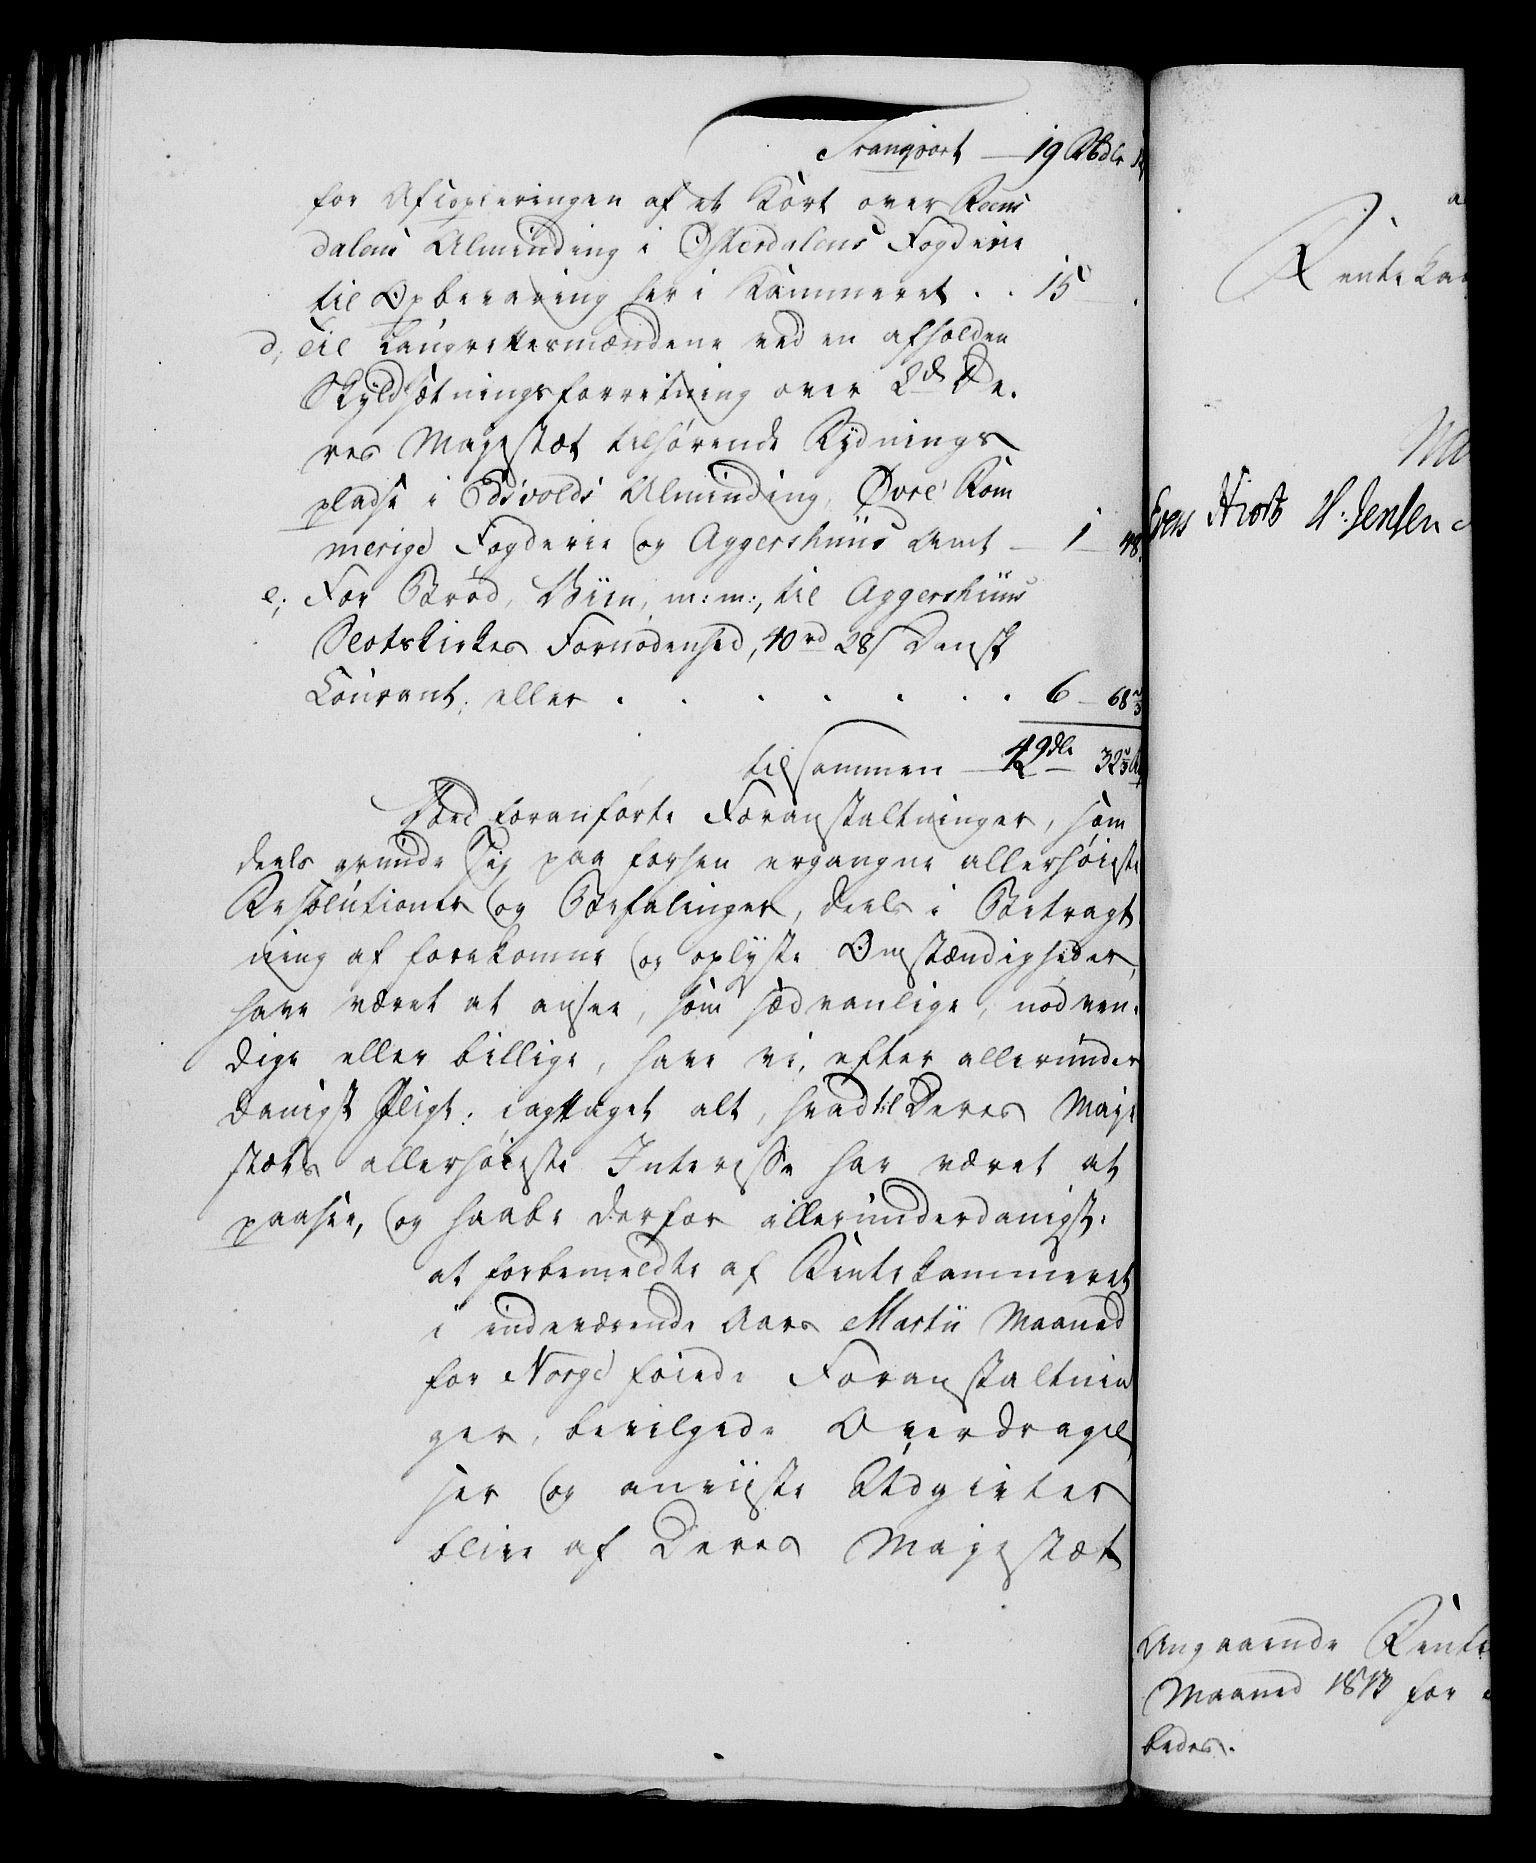 Transport — 19 Rbdlr
for Afcopieringen af et Kort over Reens
dalens Alminding i Østerdalens Fogderie
til Opbevaring her i Kammeret . . 15 .
d, Til Laugrettesmændene ved en afholden
Skyldsætningsforretning over De-
res Majestæt tilhørende Rydnings
pladse i Edsvolds Alminding, Øvre Rom
merige Fogderie og Aggershuus Amt — 1 — 48
e, For Brød, Viin, m:m:, til Aggershuus
Slotskirkes Fornødenhed, 40 rd 28 s Dansk
Courant, eller . . . . . . 6 — 68
tilsammen — 42 dlr 32
Ved foranførte Foranstaltninger, som
deels grunde sig paa forhen ergangne allerhøieste
Resolutioner og Befalinger, deels i Betragt
ning af forekomne og oplyste Omstændigheder,
have været at ansee, som sædvanlige, nødven-
dige eller billige, have vi, efter allerunder
danigst Pligt, iagttaget alt, hvad til Deres Maje
stæts allerhøieste Interesse har været at
paasee, og haabe derfor allerunderdanigst,
at forbemeldte af Rentekammeret
i indeværende Aars Martii Maaned
for Norge føiede Foranstaltnin
ger, bevilgede Overdragel
ser og anviiste Udgivter
blive af Deres Majestæt
Rentekam
Hiort H: Jensen
Angaaende Rente
Maaned 1813 for
beder.